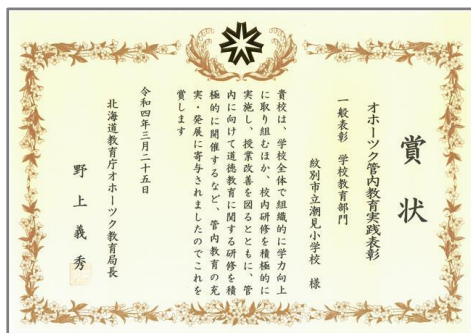 賞状
オホーツク管内教育実践表彰
一般表彰　学校教育部門
紋別市立潮見小学校　様
貴校は、学校全体で組織的に学力向上
に取り組むほか、校内研修を積極的に
実施し、授業改善を図るとともに、管
内に向けて道徳教育に関する研修を積
極的に開催するなど、管内教育の充
実・発展に寄与されましたのでこれを
賞します
令和四年三月二十五日
北海道教育庁オホーツク教育局長
野上義秀